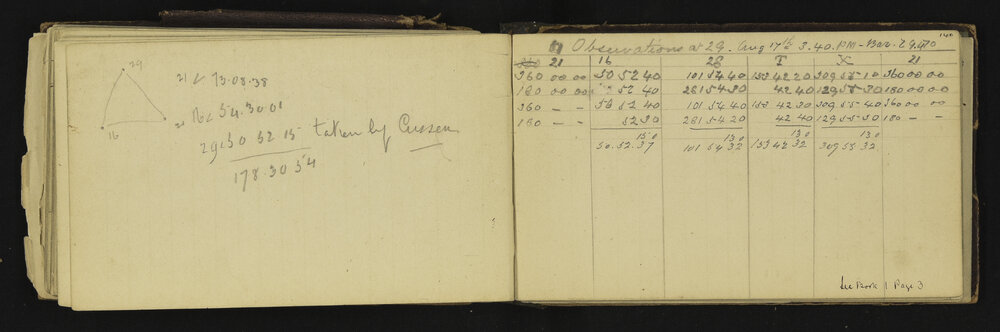 29
16
21 < 73.08.38
16 < 54.30.01
29 < 50 52 15 taken by Cussen
178.30 54
140
Observations at 29. Aug 17th 3.40. PM - Bar. 29.470
21 16 28 I X 21
360 00 00 50 52 40 101 54 40 153 42 20 309 55 10 360 00 00
180 00 00 52 40 281 54 30 42 40 129 55 30 180 00 00
360 - - 50 52 40 101 54 40 153 42 30 309 55 40 360 00 00
180 - - 52 30 281 54 20 42 40 129 55 50 180 - -
150 130 130 130
50.52.37 101 54 32 153 42 32 309 55 32
See Book 1 Page 3